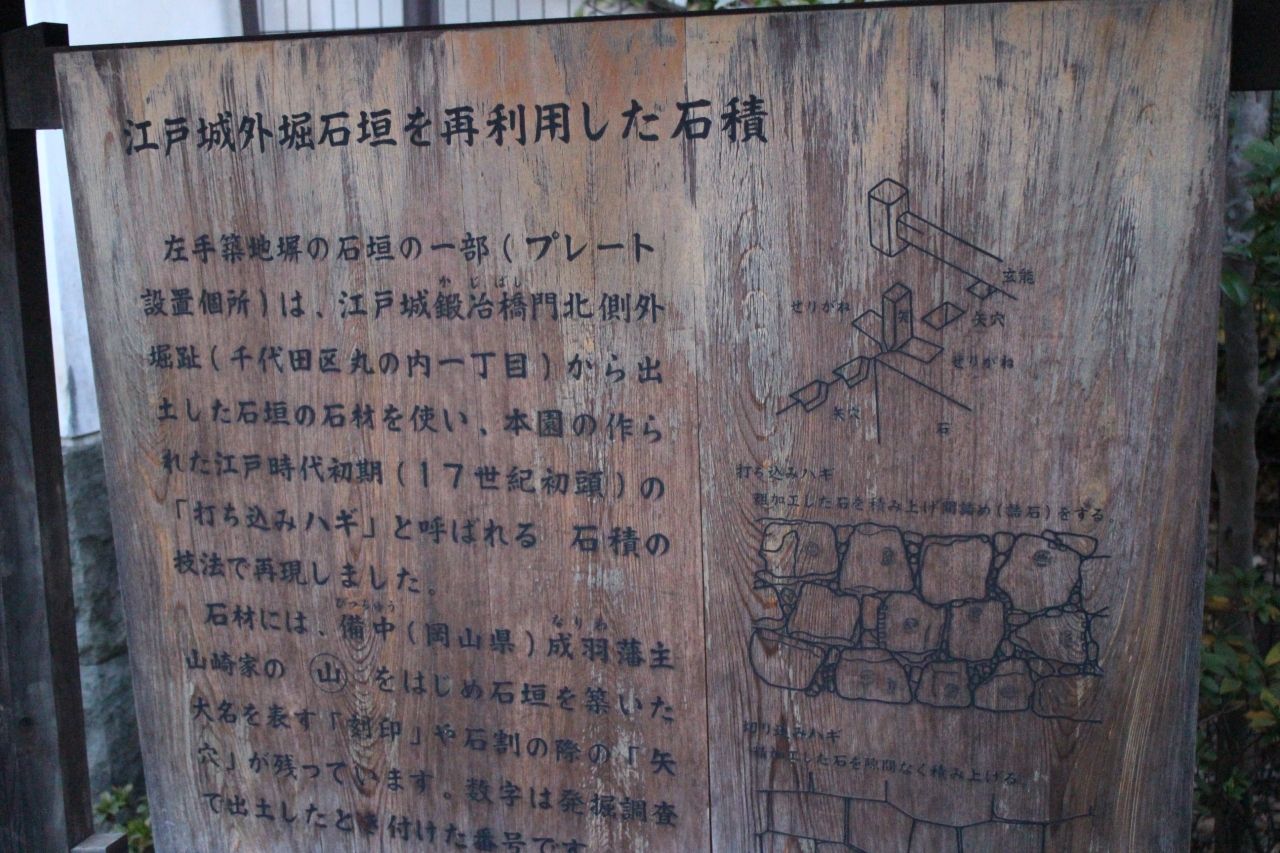 江戸城外堀石垣を再利用した石積
左手築地塀の石垣の一部(プレート
かじばし
設置個所)は、江戸城鍛冶橋門北側外
堀趾(千代田区丸の内一丁目)から出
土した石垣の石材を使い、本園の作ら
れた江戸時代初期(17世紀初頭)の
「打ち込みハギ」と呼ばれる 石積の
技法で再現しました。
びっちゅう なりわ
石材には、備中(岡山県)成羽藩主
山崎家の 山 をはじめ石垣を築いた
大名を表す「刻印」や石割の際の「矢
穴」が残っています。数字は発掘調査
で出土したとき付けた番号です
玄能
せりがね
矢
矢穴
せりがね
矢穴
石
打ち込みハギ
粗加工した石を積み上げ間詰め(詰石)をする。
切り込みハギ
精加工した石を隙間なく積み上げる。